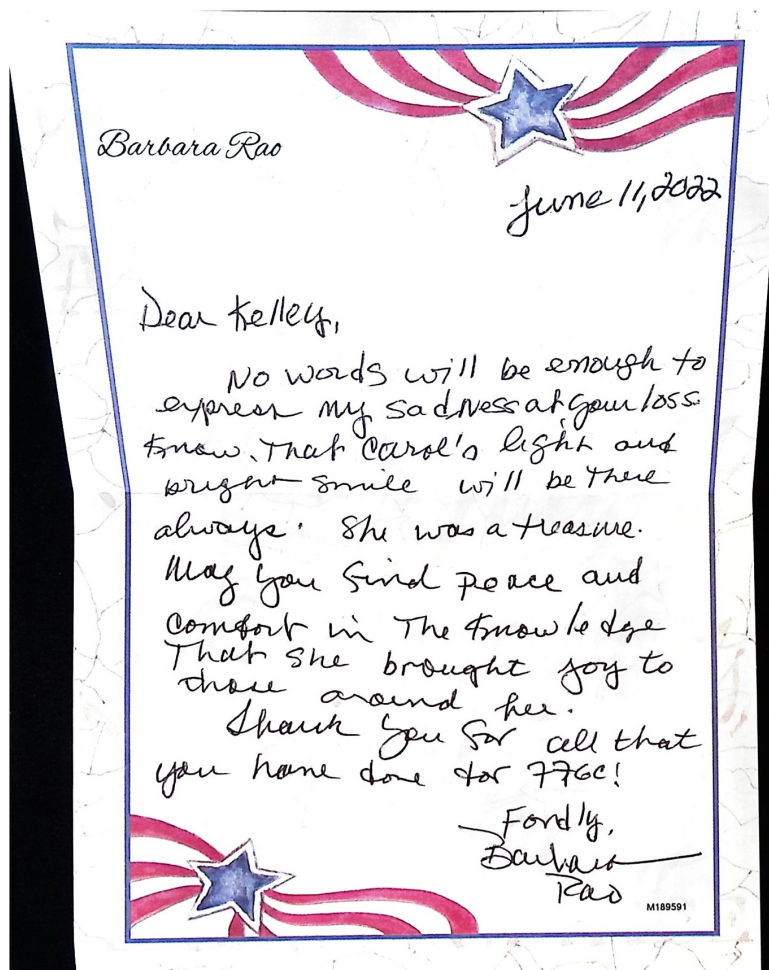 Barbara Rao
June 11, 2022
Dear Kelley,
No words will be enough to
express my sadness at your loss.
Know that Carol's light and
bright smile will be there
always. She was a treasure.
May you find peace and
comfort in The Knowledge
That she brought joy to
those around her.
Thank you for all that
you have done for 77GC!
Fondly,
Barbara
Rao
M189591